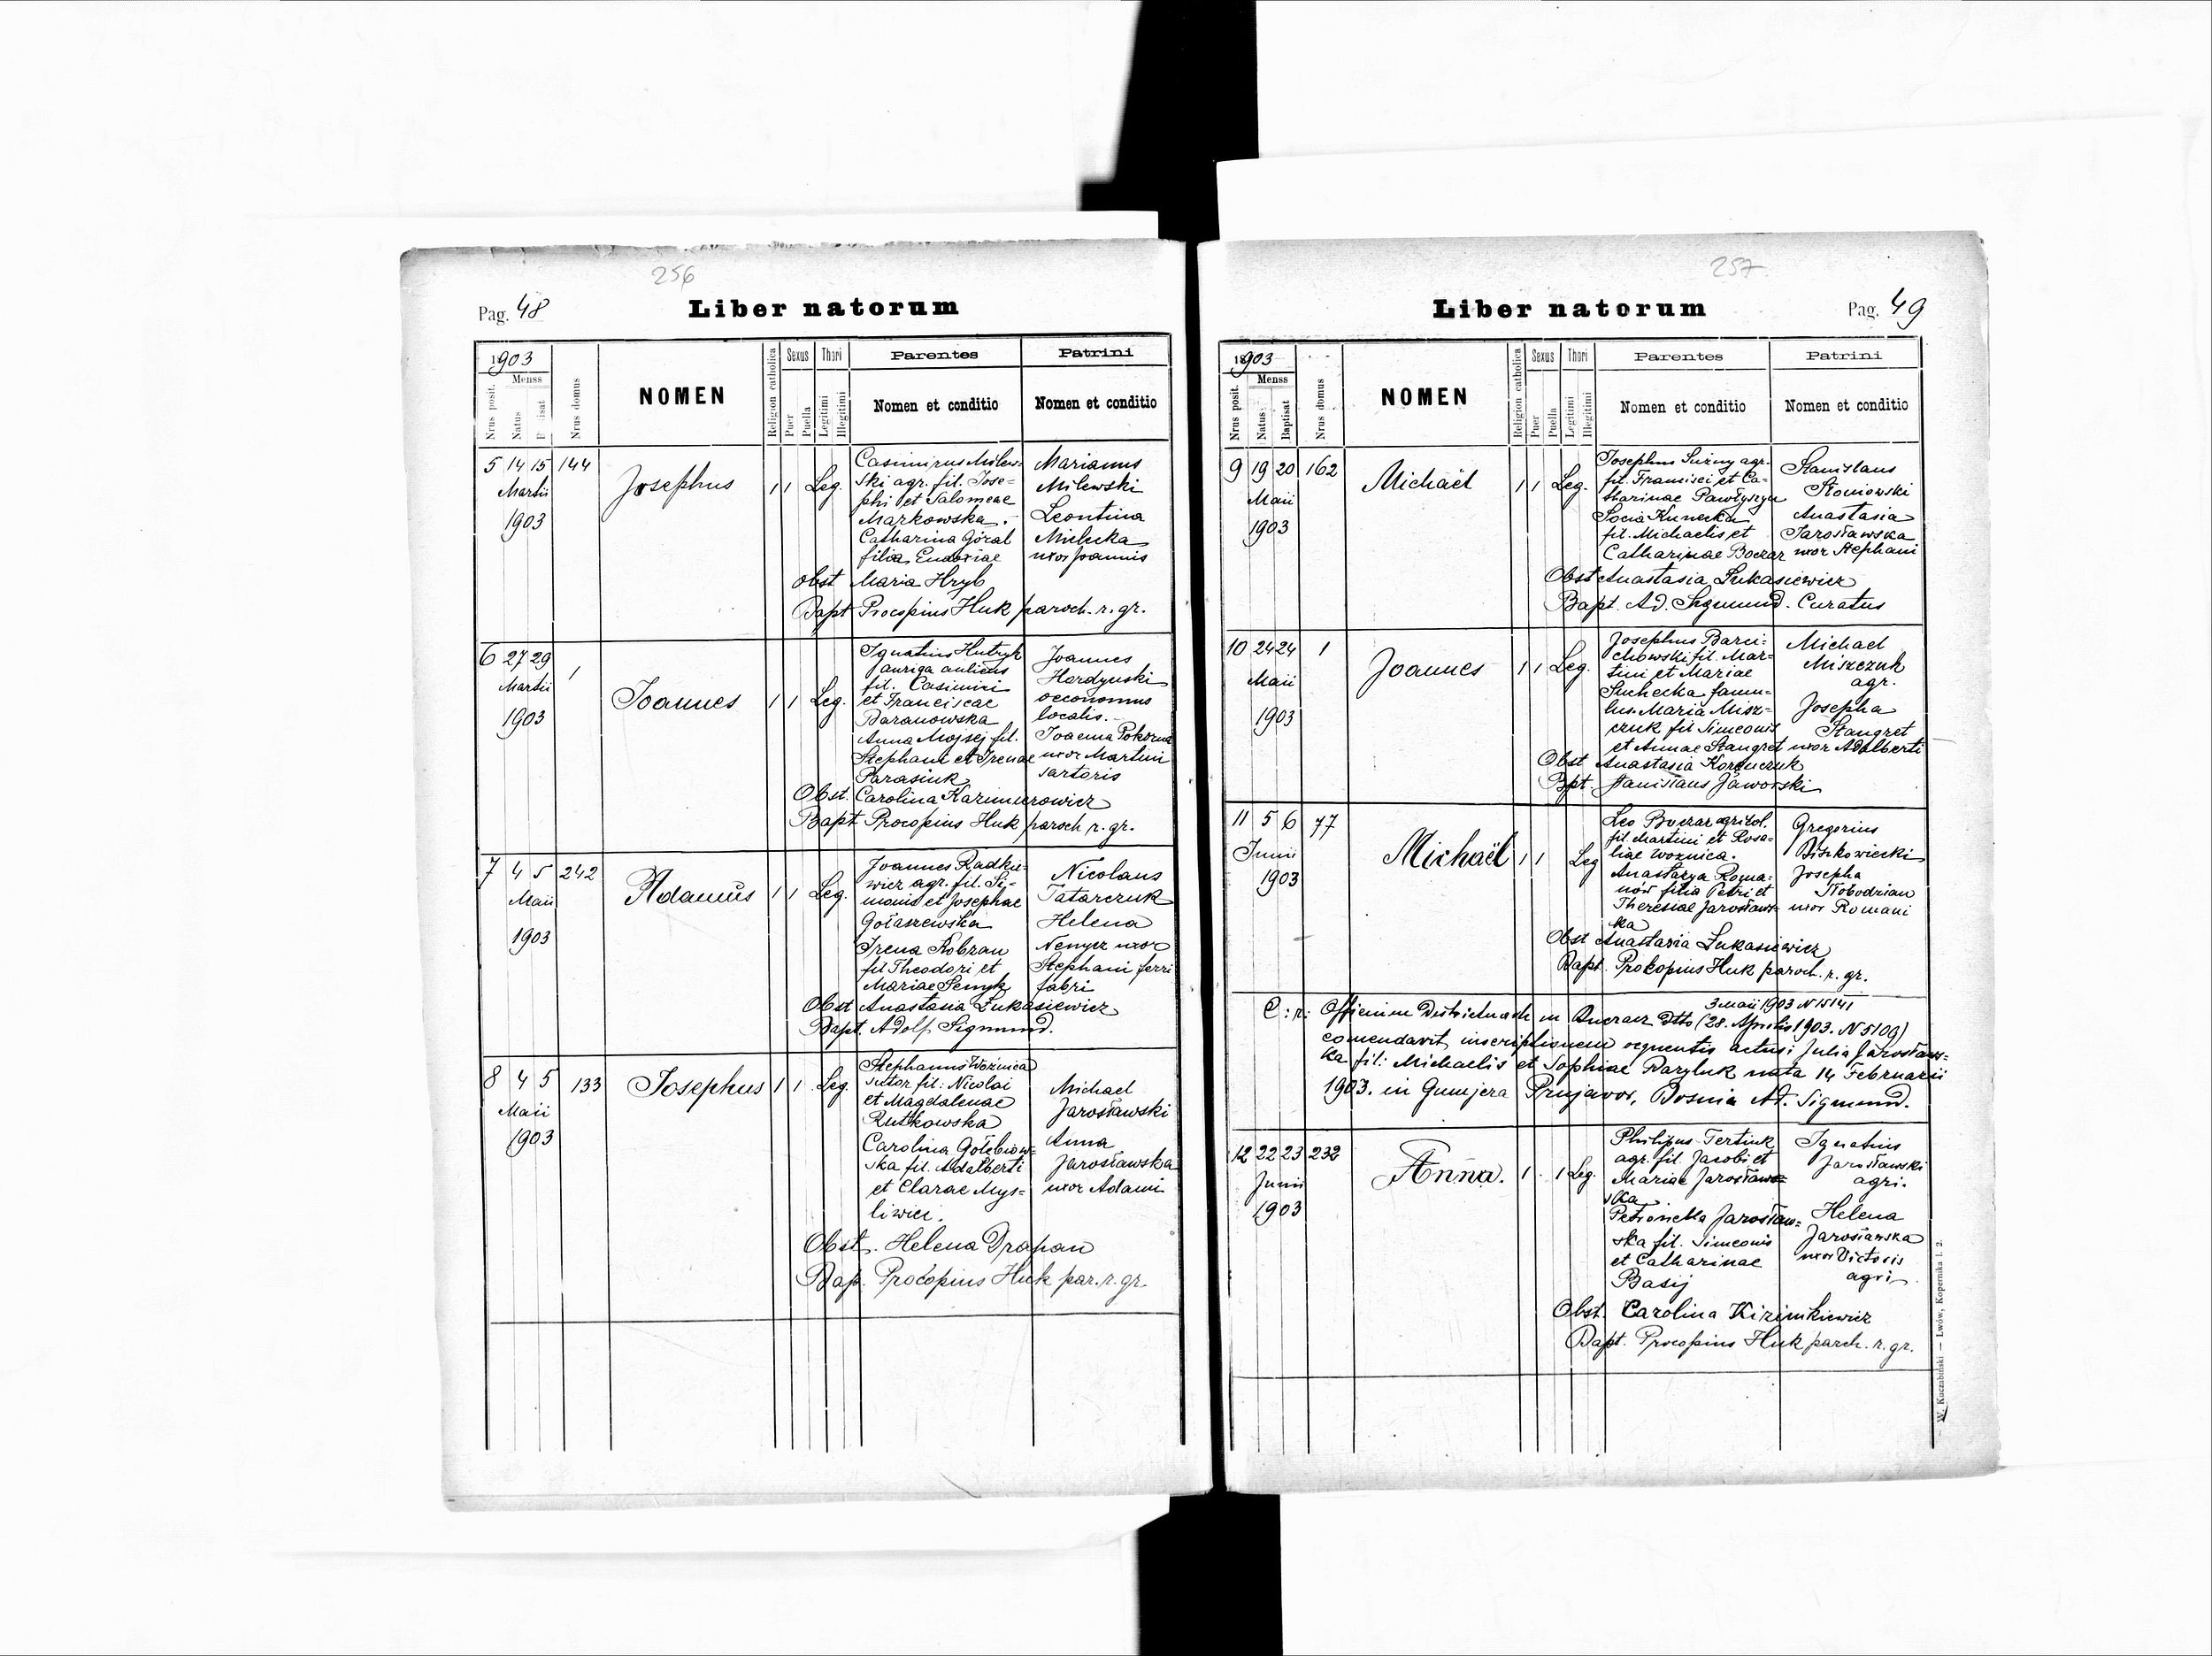 256
Pag. 48
Liber natorum
1903
Menss
Nrus posit.
Natus
Nrus domus
NOMEN
Religion catholica
Sexus
Puer
Puella
Thori
Legitimi
Illegitimi
Parentes
Nomen et conditio
Patrini
Nomen et conditio
5 14 15 144
Martii
1903
Josephus
1 1 Leg.
Casimirus Milew=
ski agr. fil. Jose=
phi et Salomeae
Markowska.
Catharina Góral
filia Eudoxiae
Marianus
Milewski
Leontina
Mielecka
uxor Joannis
Obst Maria Hryb
Bapt Procopius Huk paroch. r. gr.
6 27 29 1
Martii
1903
Joannes
1 1 Leg.
Ignatius Hutryk
auriga aulicus
fil. Casimiri
et Franciscae
Baranowska
Anna Mojsej fil.
Stephani et Irenae
Parasiuk
Joannes
Hordyński
oeconomus
localis.
Joanna Pokorna
uxor Martini
sartoris
Obst. Carolina Kazimierowicz
Bapt Procopius Huk paroch r. gr.
7 4 5 242
Maii
1903
Adamus
1 1 Leg.
Joannes Radkie=
wicz agr. fil. Si=
monis et Josephae
Gołaszewska
Irena Kobzan
fil Theodori et
Mariae Senyk
Nicolaus
Tatarczuk
Helena
Nemyez uxor
Stephani ferri
fabri
Obst Anastasia Łukasiewicz
Bapt. Adolf. Sigmund.
8 4 5 133
Maii
1903
Josephus
1 1 Leg.
Stephanus Woźnica
sutor fil: Nicolai
et Magdalenae
Rutkowska
Carolina Gołębiow=
ska fil. Adalberti
et Clarae Myś=
liwiec.
Michael
Jarosławski
Anna
Jarosławska
uxor Adami
Obst. Helena Drapan
Bap. Procopius Huk par. r. gr.
257
Liber natorum
Pag. 49
1903
Menss
Nrus posit.
Natus
Baptisat
Nrus domus
NOMEN
Religion catholica
Sexus
Puer
Puella
Thori
Legitimi
Illegitimi
Parentes
Nomen et conditio
Patrini
Nomen et conditio
9 19 20 162
Maii
1903
Michaël
1 1 Leg.
Josephus agr.
fil. Francisci et Ca-
tharinae Pawłyszyn
Kunecka
fil. Michaelis et
Catharinae Boczar
Stanislaus
Słoniowski
Anastasia
Jarosławska
uxor Stephani
Obst Anastasia Łukasiewicz
Bapt. Ad. Sigmund. Curatus
10 24 24 1
Maii
1903
Joannes
1 1 Leg.
Josephus Barci=
chowski fil. Mar=
tini et Mariae
Suchecka famu=
lus. Maria Misz=
czuk fil Simeonis
et Annae Stangret
Michael
Miszczuk
agr.
Josepha
Stangret
uxor Adalberti
Obst Anastasia Koreńczuk
Bpt. Stanislaus Jaworski
11 5 6 77
Junii
1903
Michaël
1 1 Leg
Leo Boczar agricol.
fil. Martini et Rosa=
liae Woznica.
Anastazya Roma=
nów filia Petri et
Theresiae Jarosławs=
ka
Gregorius
Biskowiecki
Josepha
Słobodzian
uxor Romani
Obst Anastasia Łukasiewicz
Bapt. Prokopius Huk paroch. r. gr.
3 maii 1903 N 15141
C: r: Officium Districtuach in Buczacz Dtto (28. Aprilis 1903. N 5109)
comendavit inscriptionem sequentis actus: Julia Jarosław=
ka fil: Michaelis et Sophiae Daryluk nata 14 Februarii
1903. in Gumjera Prnjavor, Bosnia Ad. Sigmund.
12 22 23 232
Junii
1903
Anna.
1 1 Leg.
Philipus Tertiuk
agr. fil Jacobi et
Mariae Jarosław=
ska.
Petronella Jarosław=
ska fil. Simeonis
et Catharinae
Basij
Ignatius
Jarosławski
agri.
Helena
Jarosławska
uxor Victoris
agri
Obst. Carolina Kizimkiewicz
Bapt. Procopius Huk parch. r. gr.
W. Kuczabiński — Lwów, Kopernika l. 2.